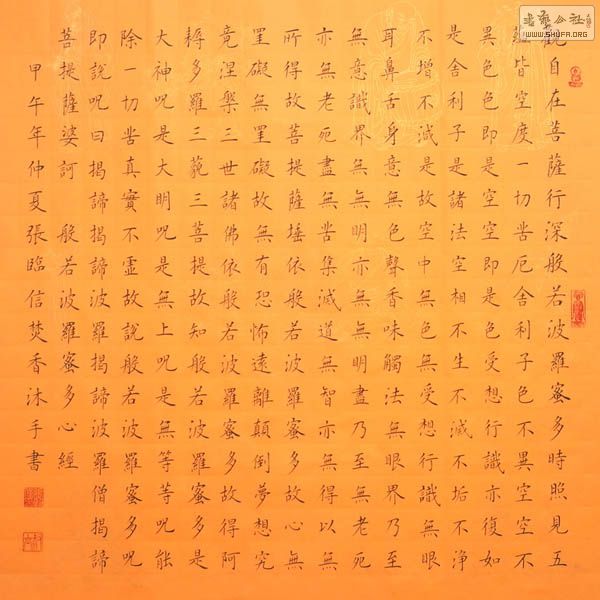 觀自在菩薩行深般若波羅蜜多時照見五
蘊皆空度一切苦厄舍利子色不異空空不
異色色即是空空即是色受想行識亦復如
是舍利子是諸法空相不生不滅不垢不淨
不增不減是故空中無色無受想行識無眼
耳鼻舌身意無色聲香味觸法無眼界乃至
無意識界無無明亦無無明盡乃至無老死
亦無老死盡無苦集滅道無智亦無得以無
所得故菩提薩埵依般若波羅蜜多故心無
罣礙無罣礙故無有恐怖遠離顛倒夢想究
竟涅槃三世諸佛依般若波羅蜜多故得阿
耨多羅三藐三菩提故知般若波羅蜜多是
大神呪是大明呪是無上呪是無等等呪能
除一切苦真實不虛故說般若波羅蜜多呪
即說呪曰揭諦揭諦波羅揭諦波羅僧揭諦
菩提薩婆訶 般若波羅蜜多心經
甲午年仲夏張臨信焚香沐手書
書藝公社
WWW.SHUFA.ORG